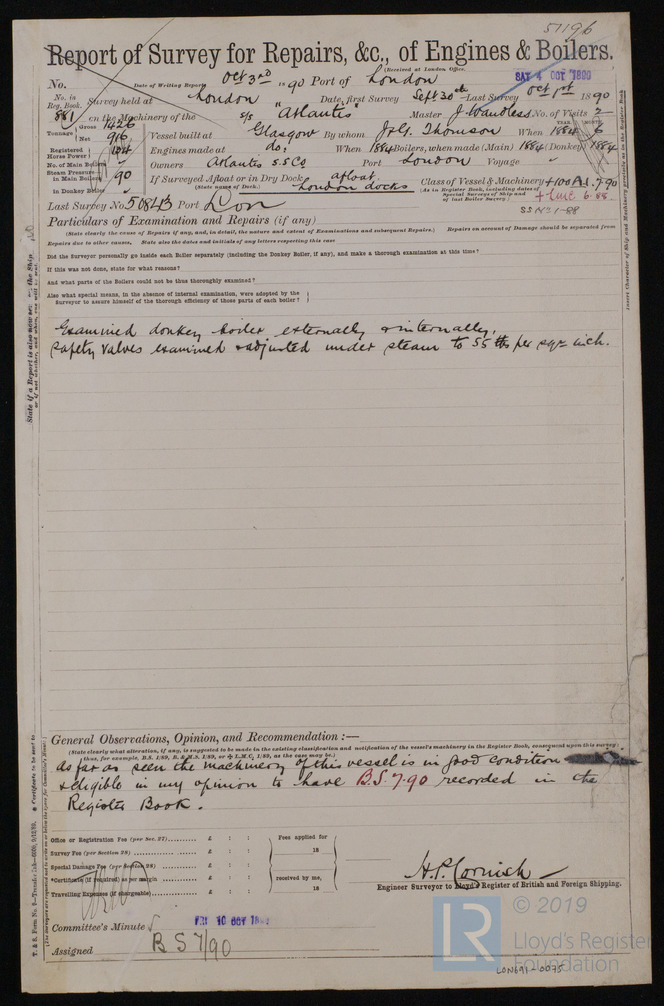 51196
Report of Survey for Repairs, &c., of Engines & Boilers.
(Received at London Office.
No. Date of Writing Report Oct 3rd 1890 Port of London SAT 4 OCT 1890
No. in Reg. Book. Survey held at London Date, first Survey Sept 30th Last Survey Oct 1st 1890
881 on the Machinery of the s/s "Atlantis" Master J. Wandless No. of Visits 2
Tonnage Gross 1426
Net 916 Vessel built at Glasgow By whom J & G Thomson When YEAR. 1884 MONTH. 6
Registered Horse Power Engines made at do. When 1884 Boilers, when made (Main) 1884 (Donkey) 1884
No. of Main Boilers Owners Atlantis S.S Co Port London Voyage
Steam Pressure in Main Boilers 90 If Surveyed Afloat or in Dry Dock afloat Class of Vessel & Machinery +100A1. 7.90
in Donkey Boiler (State name of Dock.) London docks (As in Register Book, including dates of Special Surveys of Ship and of last Boiler Survey.) + LMC 6.88
SS No 1-88
Last Survey No. 50843 Port Lon
Particulars of Examination and Repairs (if any)
(State clearly the cause of Repairs if any, and, in detail, the nature and extent of Examinations and subsequent Repairs.) Repairs on account of Damage should be separated from
Repairs due to other causes. State also the dates and initials of any letters respecting this case
Did the Surveyor personally go inside each Boiler separately (including the Donkey Boiler, if any), and make a thorough examination at this time?
If this was not done, state for what reasons?
And what parts of the Boilers could not be thus thoroughly examined?
Also what special means, in the absence of internal examination, were adopted by the
Surveyor to assure himself of the thorough efficiency of those parts of each boiler?
Examined donkey boiler externally & internally,
safety valves examined & adjusted under steam to 55 lbs per sqr inch.
General Observations, Opinion, and Recommendation :—
(State clearly what alteration, if any, is suggested to be made in the existing classification and notification of the vessel's machinery in the Register Book, consequent upon this survey;
thus, for example, B.S. 1/89, B.&M.S. 1/89, or L.M.C. 1/89, as the case may be.)
As far as seen the machinery of this vessel is in good condition
& eligible in my opinion to have B.S. 7.90 recorded in the
Register Book.
Office or Registration Fee (per Sec. 27) £ : : Fees applied for
Survey Fee (per Section 28) £ : : 18
Special Damage Fee (per Section 28) £ : :
*Certificate (if required) as per margin £ : : received by me,
Travelling Expenses (if chargeable) £ : : 18
H. P. Cornish
Engineer Surveyor to Lloyd's Register of British and Foreign Shipping.
Committee's Minute FRI 10 OCT 1890
Assigned B S 7/90
© 2019
LR
Lloyd's Register
Foundation
LON691-0075